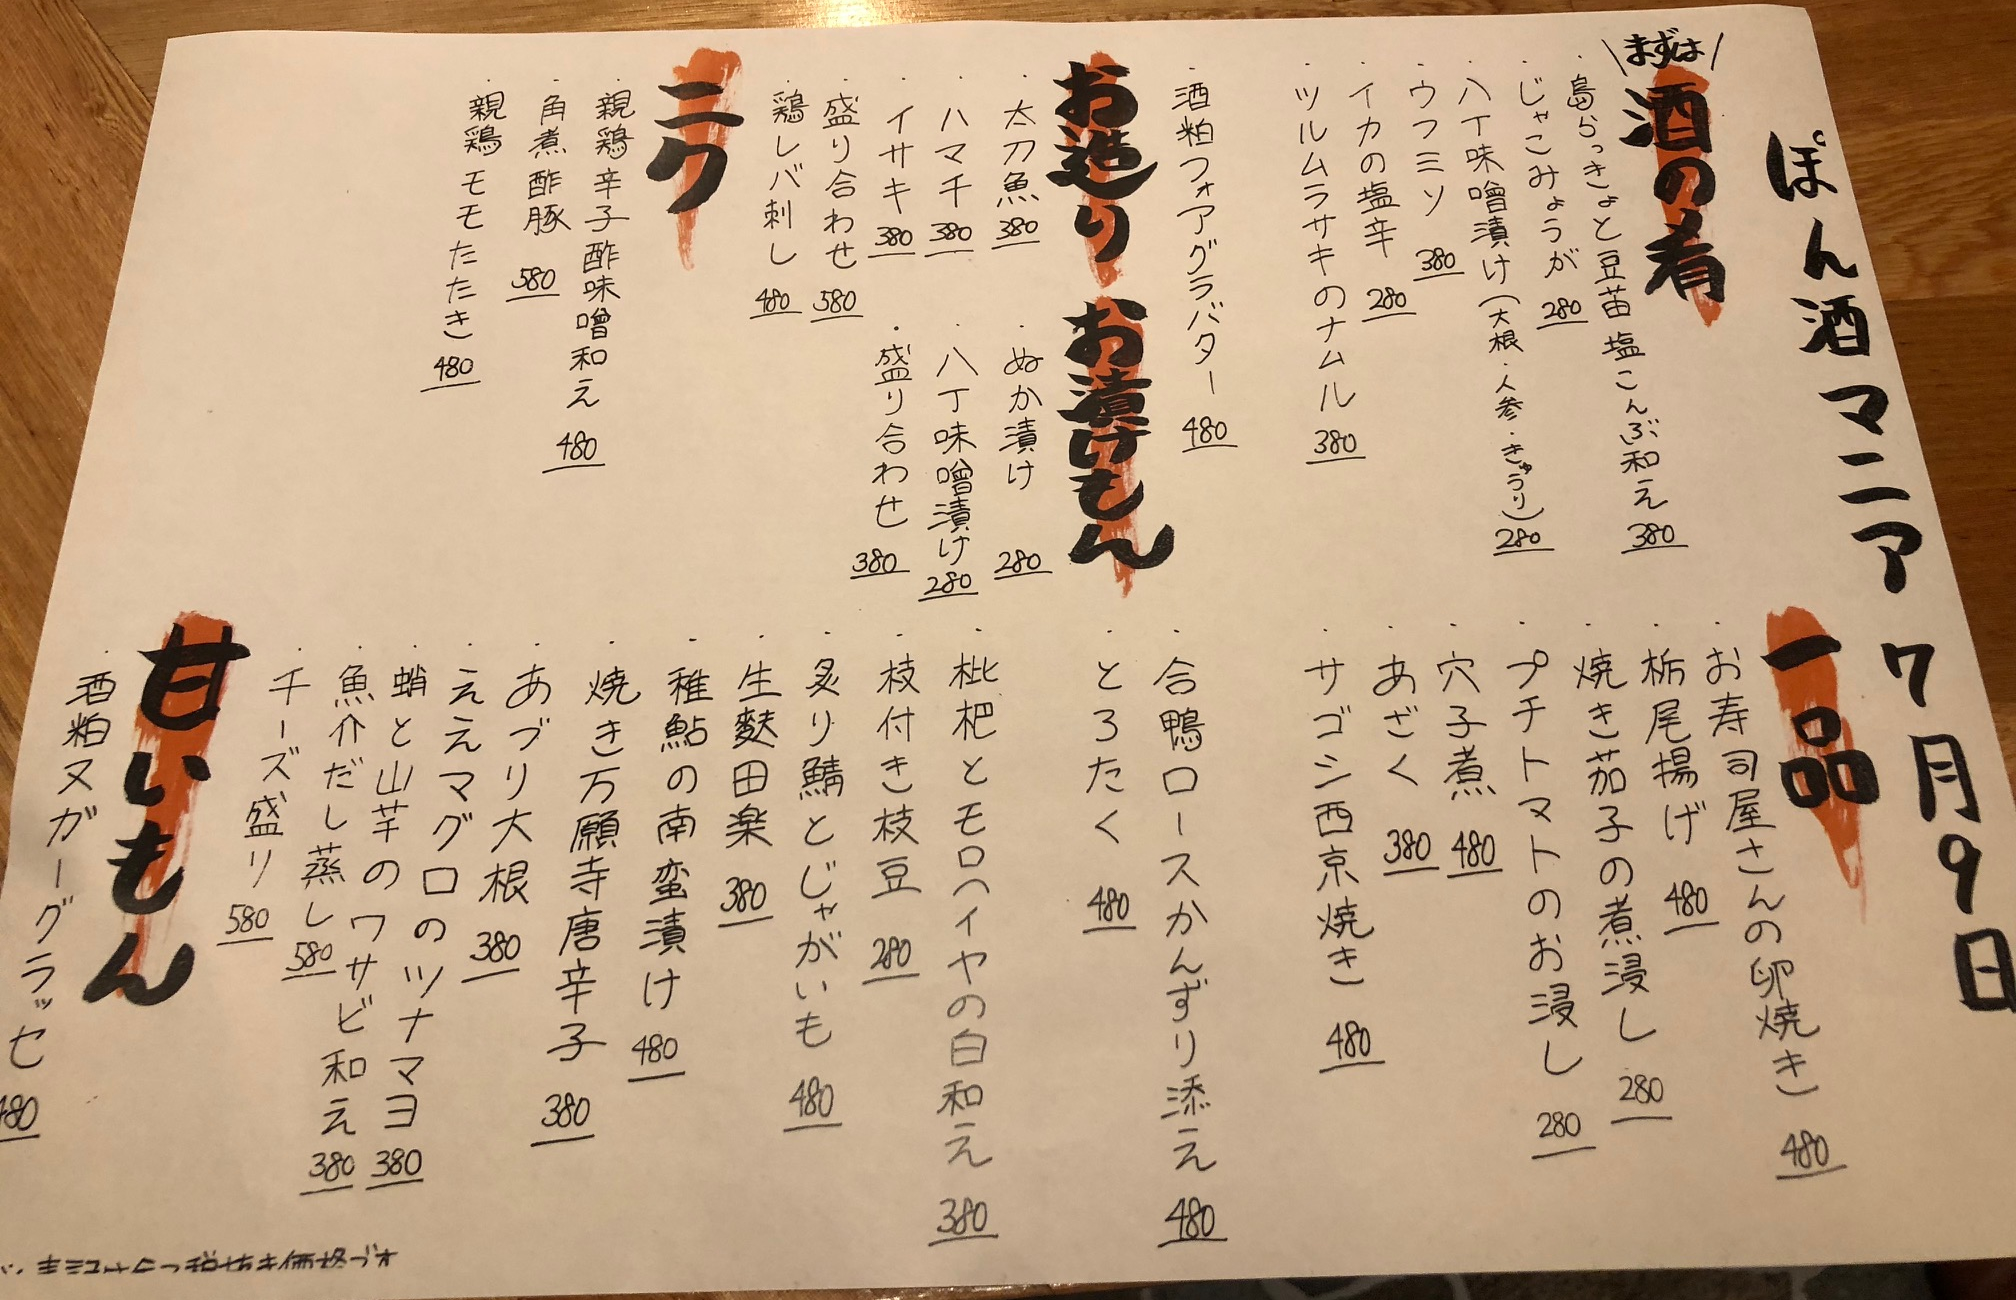 ぽん酒マニア 7月9日
まずは
酒の肴
・島らっきょと豆苗塩こんぶ和え 380
・じゃこみょうが 280
・八丁味噌漬け(大根・人参・きゅうり) 280
・ウフミソ 380
・イカの塩辛 280
・ツルムラサキのナムル 380
・酒粕フォアグラバター 480
お造り
・太刀魚 380
・ハマチ 380
・イサキ 380
・盛り合わせ 580
・鶏レバ刺し 480
お漬けもん
・ぬか漬け 280
・八丁味噌漬け 280
・盛り合わせ 380
ニク
・親鶏辛子酢味噌和え 480
・角煮酢豚 580
・親鶏モモたたき 480
一品
・お寿司屋さんの卵焼き 480
・栃尾揚げ 480
・焼き茄子の煮浸し 280
・プチトマトのお浸し 280
・穴子煮 480
・あざく 380
・サゴシ西京焼き 480
・合鴨ロースかんずり添え 480
・とろたく 480
・枇杷とモロヘイヤの白和え 380
・枝付き枝豆 280
・炙り鯖とじゃがいも 480
・生麩田楽 380
・稚鮎の南蛮漬け 480
・焼き万願寺唐辛子 380
・あづり大根 380
・ええマグロのツナマヨ 380
・蛸と山芋のワサビ和え 380
・魚介だし蒸し 580
・チーズ盛り 580
甘いもん
・酒粕ヌガーグラッセ 480